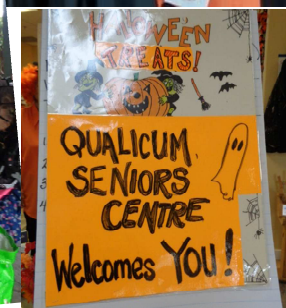 HALLOWE'EN
TREATS!
QUALICUM
SENIORS
CENTRE
Welcomes YOU!